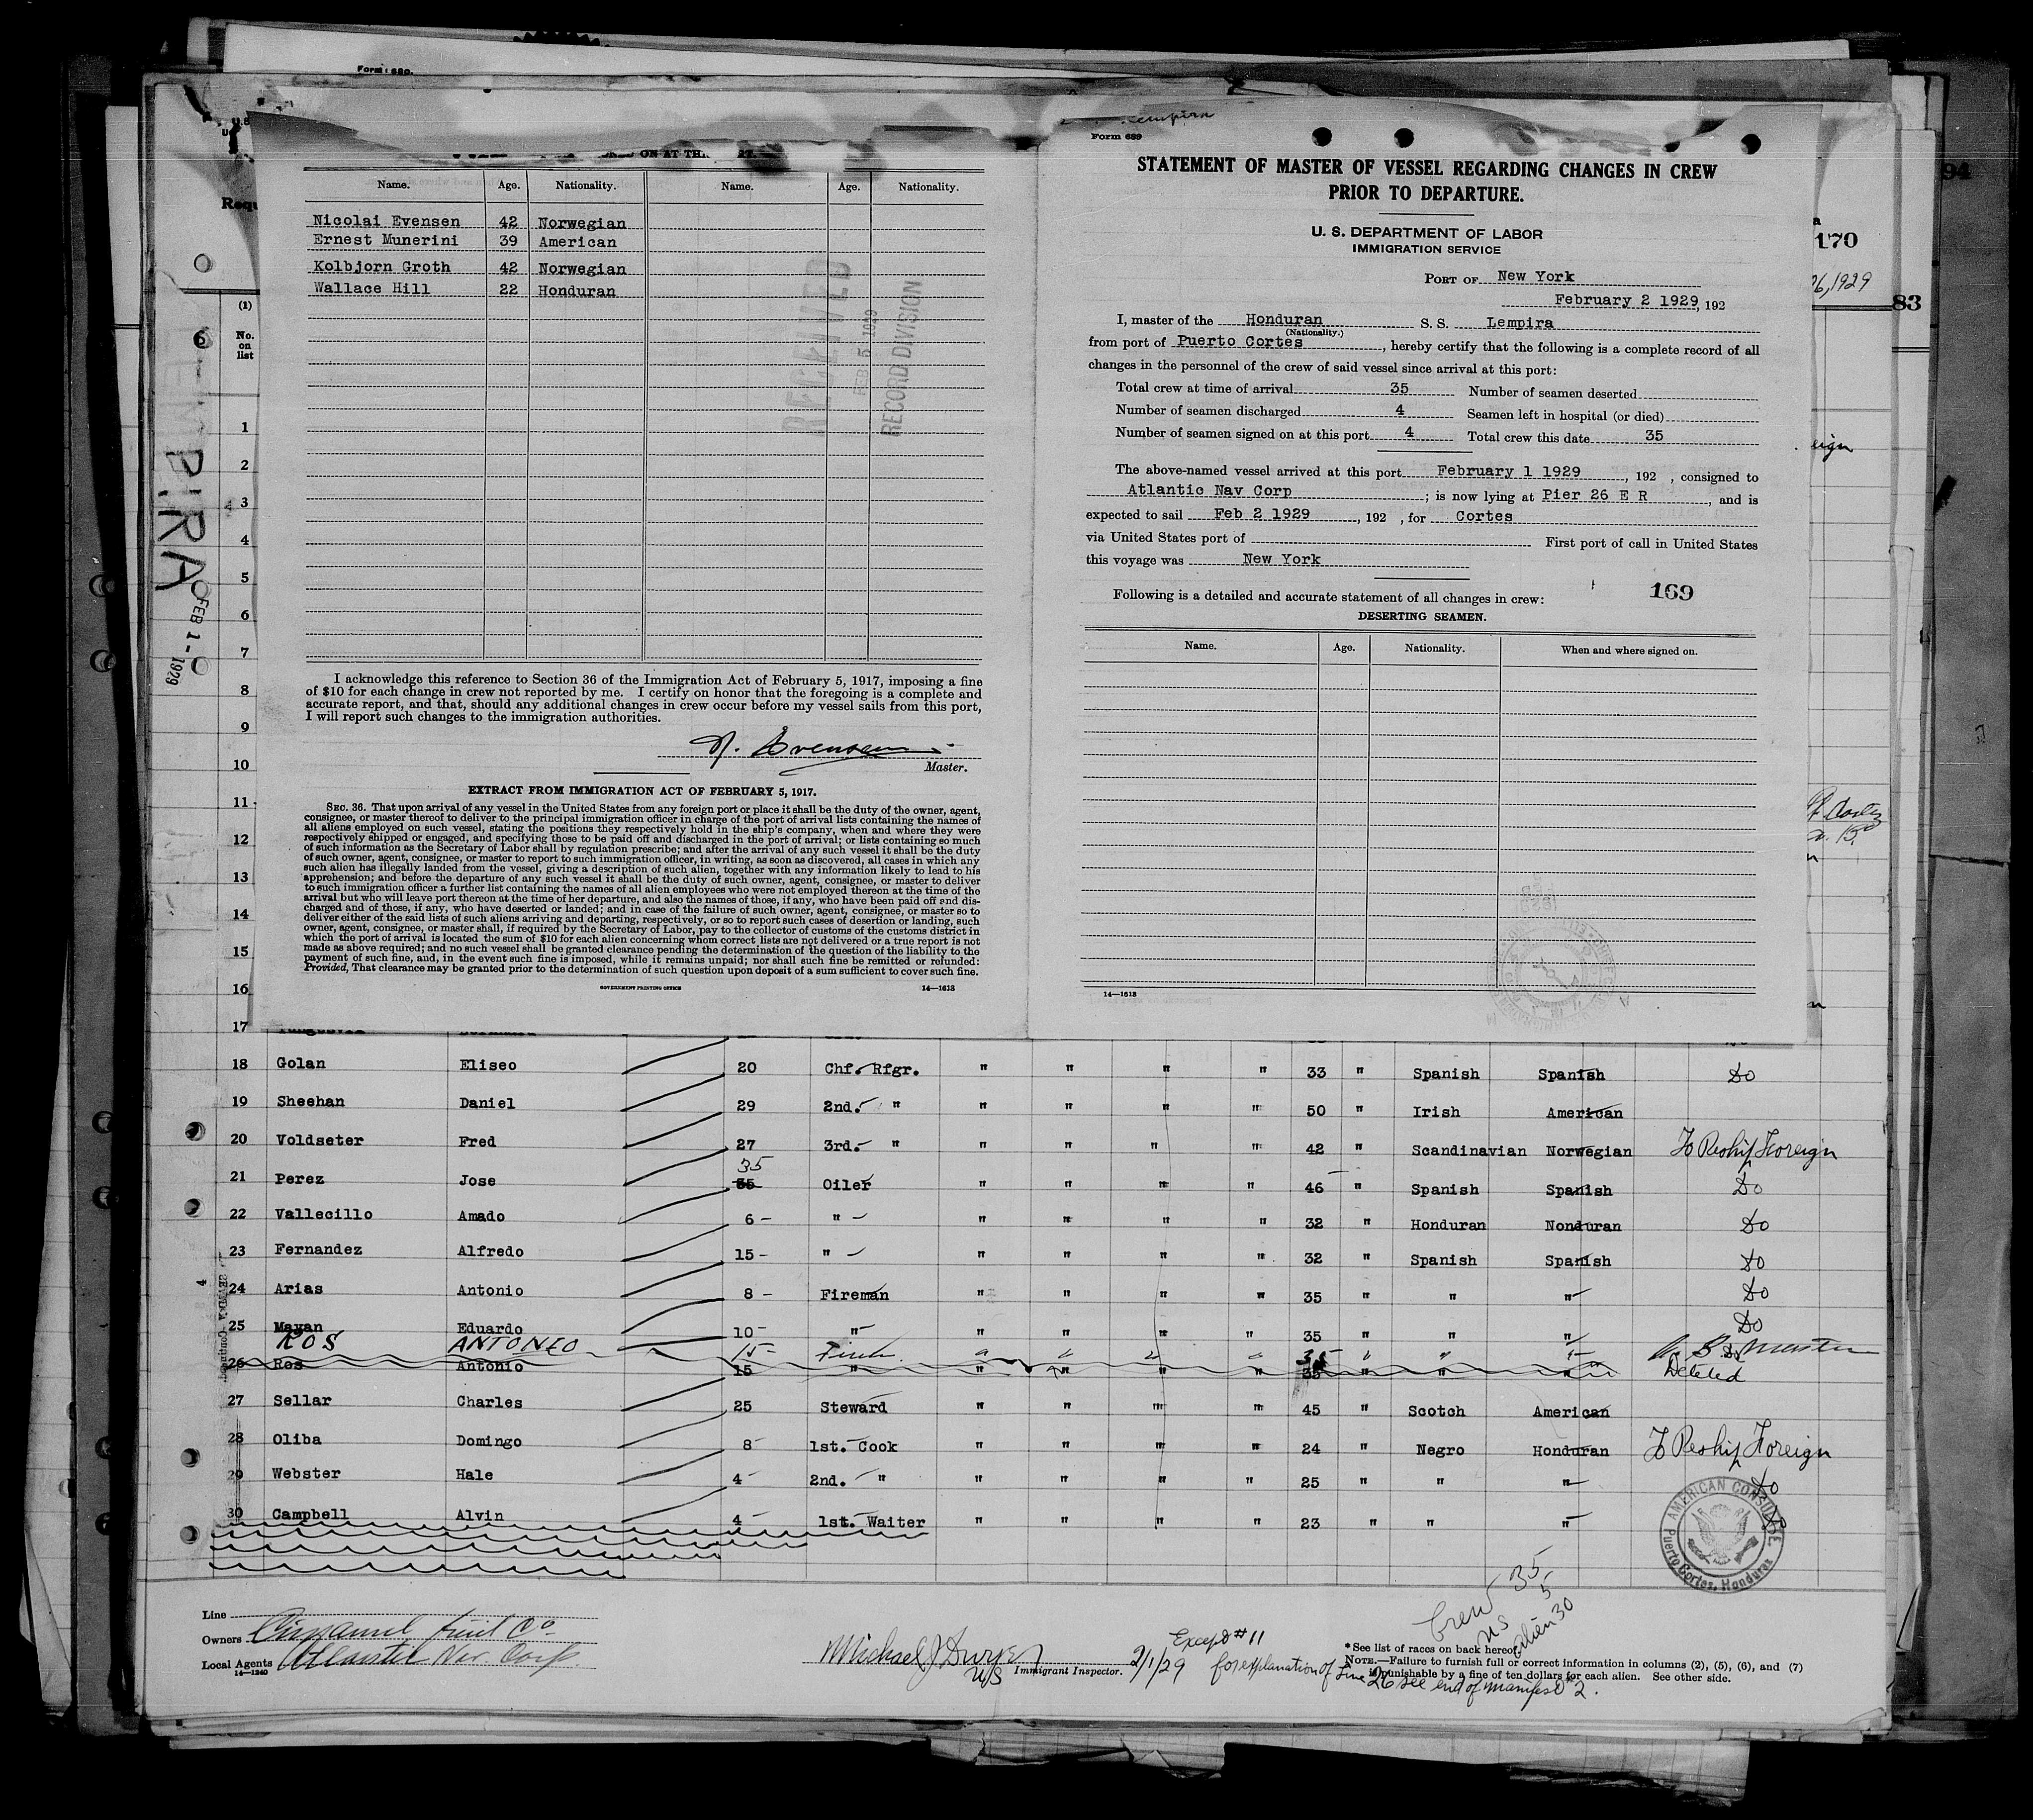 Form 680.
94
170
26, 1929
83
Lempira
Form 689
STATEMENT OF MASTER OF VESSEL REGARDING CHANGES IN CREW
PRIOR TO DEPARTURE.
U. S. DEPARTMENT OF LABOR
IMMIGRATION SERVICE
PORT OF New York
February 2 1929, 192
I, master of the Honduran S. S. Lempira
(Nationality.)
from port of Puerto Cortes, hereby certify that the following is a complete record of all
changes in the personnel of the crew of said vessel since arrival at this port:
Total crew at time of arrival 35 Number of seamen deserted
Number of seamen discharged 4 Seamen left in hospital (or died)
Number of seamen signed on at this port 4 Total crew this date 35
The above-named vessel arrived at this port February 1 1929, 192 , consigned to
Atlantic Nav Corp ; is now lying at Pier 26 E R, and is
expected to sail Feb 2 1929, 192 , for Cortes
via United States port of First port of call in United States
this voyage was New York
169
Following is a detailed and accurate statement of all changes in crew:
DESERTING SEAMEN.
Name. Age. Nationality. When and where signed on.
14—1613
ON AT TH
Name. Age. Nationality. Name. Age. Nationality.
Nicolai Evensen 42 Norwegian
Ernest Munerini 39 American
Kolbjorn Groth 42 Norwegian
Wallace Hill 22 Honduran
RECEIVED
FEB 5 1929
RECORD DIVISION
I acknowledge this reference to Section 36 of the Immigration Act of February 5, 1917, imposing a fine
of $10 for each change in crew not reported by me. I certify on honor that the foregoing is a complete and
accurate report, and that, should any additional changes in crew occur before my vessel sails from this port,
I will report such changes to the immigration authorities.
N. Evensen
Master.
EXTRACT FROM IMMIGRATION ACT OF FEBRUARY 5, 1917.
SEC. 36. That upon arrival of any vessel in the United States from any foreign port or place it shall be the duty of the owner, agent,
consignee, or master thereof to deliver to the principal immigration officer in charge of the port of arrival lists containing the names of
all aliens employed on such vessel, stating the positions they respectively hold in the ship's company, when and where they were
respectively shipped or engaged, and specifying those to be paid off and discharged in the port of arrival; or lists containing so much
of such information as the Secretary of Labor shall by regulation prescribe; and after the arrival of any such vessel it shall be the duty
of such owner, agent, consignee, or master to report to such immigration officer, in writing, as soon as discovered, all cases in which any
such alien has illegally landed from the vessel, giving a description of such alien, together with any information likely to lead to his
apprehension; and before the departure of any such vessel it shall be the duty of such owner, agent, consignee, or master to deliver
to such immigration officer a further list containing the names of all alien employees who were not employed thereon at the time of the
arrival but who will leave port thereon at the time of her departure, and also the names of those, if any, who have been paid off and dis-
charged and of those, if any, who have deserted or landed; and in case of the failure of such owner, agent, consignee, or master so to
deliver either of the said lists of such aliens arriving and departing, respectively, or so to report such cases of desertion or landing, such
owner, agent, consignee, or master shall, if required by the Secretary of Labor, pay to the collector of customs of the customs district in
which the port of arrival is located the sum of $10 for each alien concerning whom correct lists are not delivered or a true report is not
made as above required; and no such vessel shall be granted clearance pending the determination of the question of the liability to the
payment of such fine, and, in the event such fine is imposed, while it remains unpaid; nor shall such fine be remitted or refunded:
Provided, That clearance may be granted prior to the determination of such question upon deposit of a sum sufficient to cover such fine.
GOVERNMENT PRINTING OFFICE 14—1613
Requ
(1)
No.
on
list
6
PIRA
FEB 1 - 1929
1
2
3
4
5
6
7
8
9
10
11
12
13
14
15
16
17
18 Golan Eliseo 20 Chf. Rfgr. " " " " 33 " Spanish Spanish Do
19 Sheehan Daniel 29 2nd. " " " " " 50 " Irish American
20 Voldseter Fred 27 3rd. " " " " " 42 " Scandinavian Norwegian To Reship Foreign
35
21 Perez Jose 35 Oiler " " " " 46 " Spanish Spanish Do
22 Vallecillo Amado 6 " " " " " 32 " Honduran Nonduran Do
23 Fernandez Alfredo 15 " " " " " 32 " Spanish Spanish Do
24 Arias Antonio 8 Fireman " " " " 35 " " " Do
25 Mayan Eduardo 10 " " " " " 35 " " " Do
ROS ANTONEO 15 " " " " 35 " " "
26 Ros Antonio 15 " " " " " 35 " " " Deleted
27 Sellar Charles 25 Steward " " " " 45 " Scotch American
28 Oliba Domingo 8 1st. Cook " " " " 24 " Negro Honduran To Reship Foreign
29 Webster Hale 4 2nd. " " " " " 25 " " " Do
30 Campbell Alvin 4 1st. Waiter " " " " 23 " " " Do
AMERICAN CONSULATE
Puerto Cortes, Honduras
Crew 35
US 5
Alien 30
Line
Owners Fruit Co
Local Agents Atlantic Nav. Corp.
14—1240
Michael J Dwyer
US Immigrant Inspector. 2/1/29
Except #11
for explanation of Line 26 see end of manifest #2.
* See list of races on back hereof.
NOTE.—Failure to furnish full or correct information in columns (2), (5), (6), and (7)
is punishable by a fine of ten dollars for each alien. See other side.